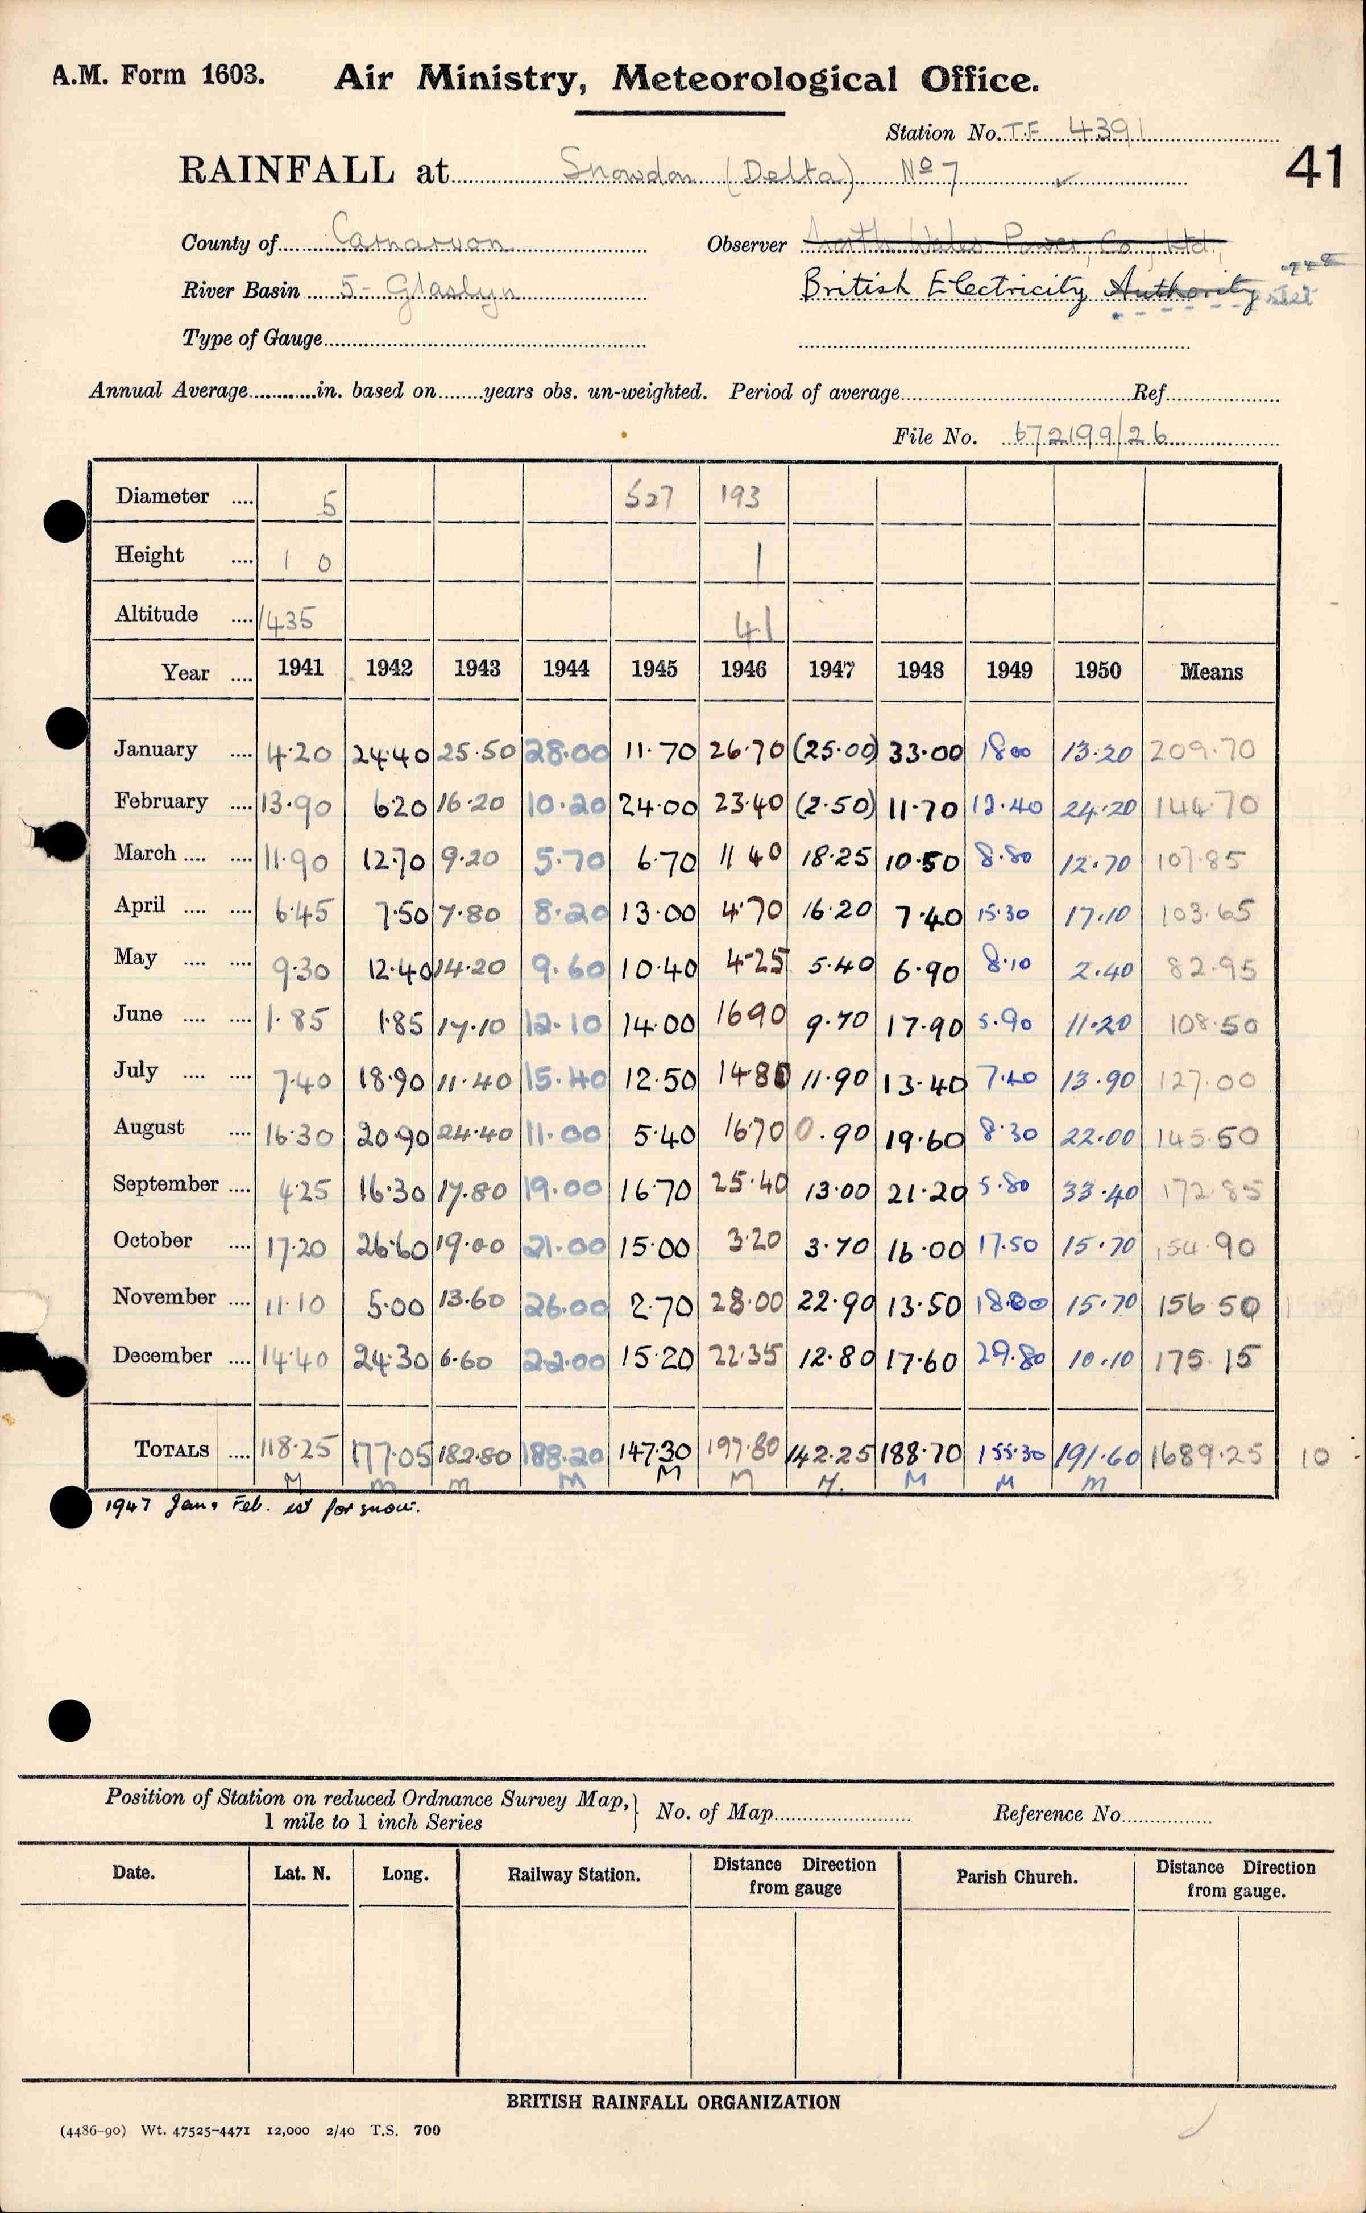 A.M. Form 1603. Air Ministry, Meteorological Office.
Station No. T.F. 4391
41
RAINFALL at Snowdon (Delta) Nº 7 ✓
County of Carnarvon Observer North Wales Power Co., Ltd.,
River Basin 5 - Glaslyn British Electricity Authority stet
Type of Gauge
Annual Average in. based on years obs. un-weighted. Period of average Ref
File No. 672199/26
Diameter 5 527 193
Height 1 0 1
Altitude 1435 41
Year 1941 1942 1943 1944 1945 1946 1947 1948 1949 1950 Means
January 4.20 24.40 25.50 28.00 11.70 26.70 (25.00) 33.00 18.00 13.20 209.70
February 13.90 6.20 16.20 10.20 24.00 23.40 (2.50) 11.70 12.40 24.20 144.70
March 11.90 12.70 9.20 5.70 6.70 11 40 18.25 10.50 8.80 12.70 107.85
April 6.45 7.50 7.80 8.20 13.00 4.70 16.20 7.40 15.30 17.10 103.65
May 9.30 12.40 14.20 9.60 10.40 4.25 5.40 6.90 8.10 2.40 82.95
June 1.85 1.85 17.10 12.10 14.00 16 90 9.70 17.90 5.90 11.20 108.50
July 7.40 18.90 11.40 15.40 12.50 14.80 11.90 13.40 7.40 13.90 127.00
August 16.30 20.90 24.40 11.00 5.40 16.70 0.90 19.60 8.30 22.00 145.50
September 4.25 16.30 17.80 19.00 16.70 25.40 13.00 21.20 5.80 33.40 172.85
October 17.20 26.60 19.00 21.00 15.00 3.20 3.70 16.00 17.50 15.70 154.90
November 11.10 5.00 13.60 26.00 2.70 28.00 22.90 13.50 18.00 15.70 156 50
December 14.40 24.30 6.60 22.00 15.20 22.35 12.80 17.60 29.80 10.10 175.15
TOTALS 118.25 177.05 182.80 188.20 147.30 197.80 142.25 188.70 155.30 191.60 1689.25 10
M M M M M M M. M M M
1947 Jan, Feb. est for snow.
Position of Station on reduced Ordnance Survey Map, 1 mile to 1 inch Series No. of Map Reference No.
Date. Lat. N. Long. Railway Station. Distance Direction from gauge Parish Church. Distance Direction from gauge.
BRITISH RAINFALL ORGANIZATION
(4486-90) Wt. 47525-4471 12,000 2/40 T.S. 700